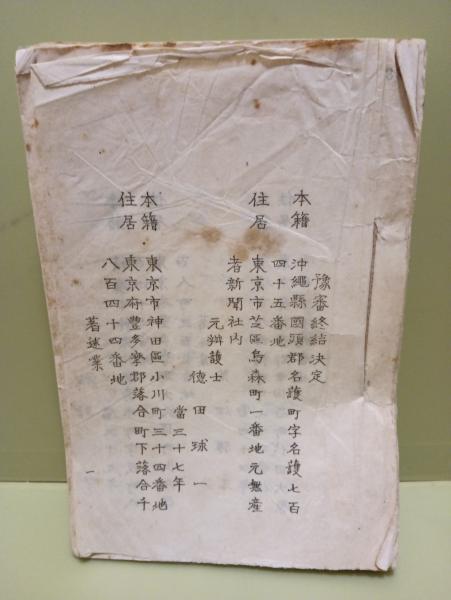 豫審終結決定
本籍 沖繩縣國頭郡名護町字名護七百
四十五番地
住居 東京市芝區烏森町一番地元無産
者新聞社内
元辯護士
德田球一
當三十七年
本籍 東京市神田區小川町三十四番地
住居 東京府豊多摩郡落合町下落合千
八百四十四番地
著述業
一